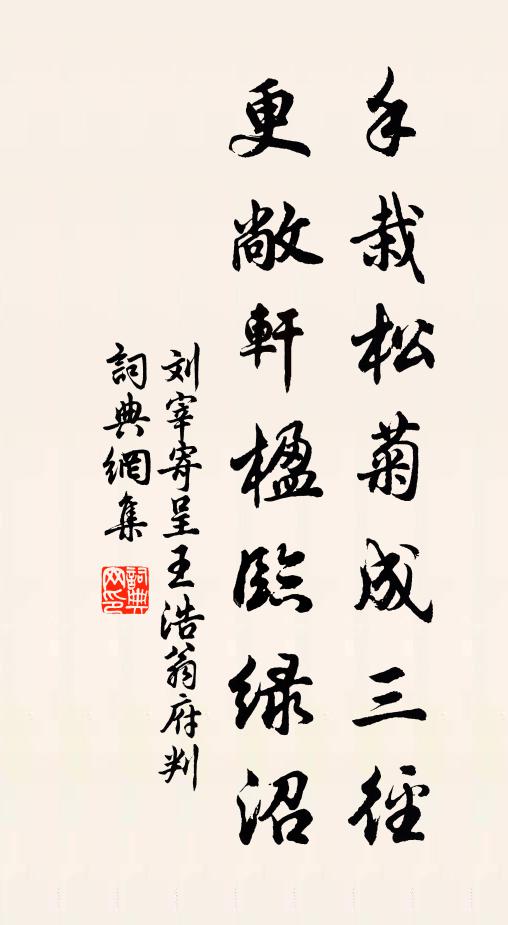 手栽松菊成三徑
更敞軒楹臨绿沼
刘宰寄呈王浩翁府判
詞典網集
詞典网印